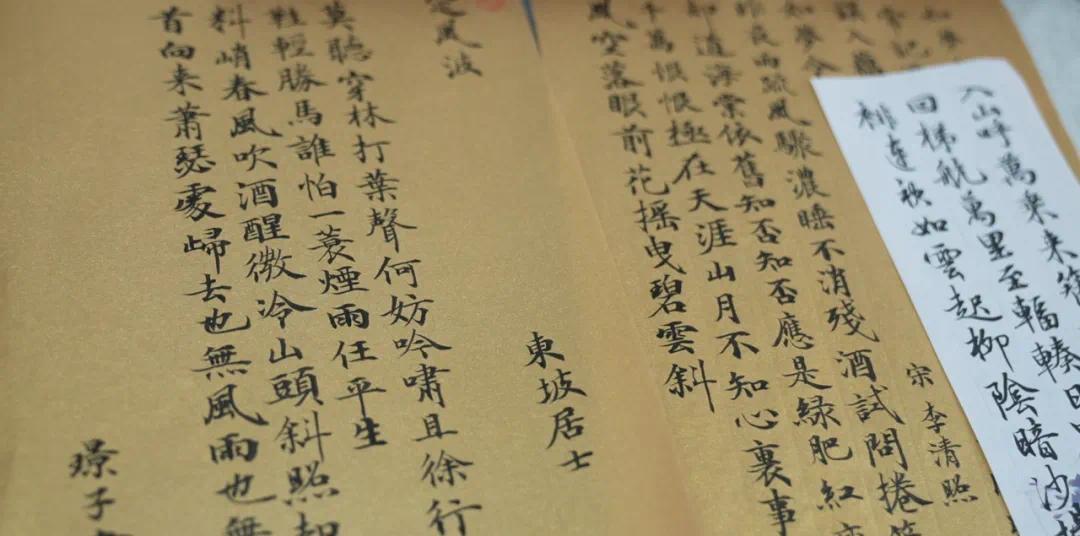 入山呼萬来
回梯航萬里至輻輳
排連袂如雲起柳陰暗沙
如夢
常記
誤入藕
如夢令 宋 李清照
昨夜雨疏風驟濃睡不消殘酒試問捲簾
却道海棠依舊知否知否應是綠肥紅瘦
千萬恨恨極在天涯山月不知心裏事
風空落眼前花摇曳碧雲斜
定風波 東坡居士
莫聽穿林打葉聲何妨吟嘯且徐行
鞋輕勝馬誰怕一蓑煙雨任平生
料峭春風吹酒醒微冷山頭斜照却
首向来蕭瑟處歸去也無風雨也無
璟子